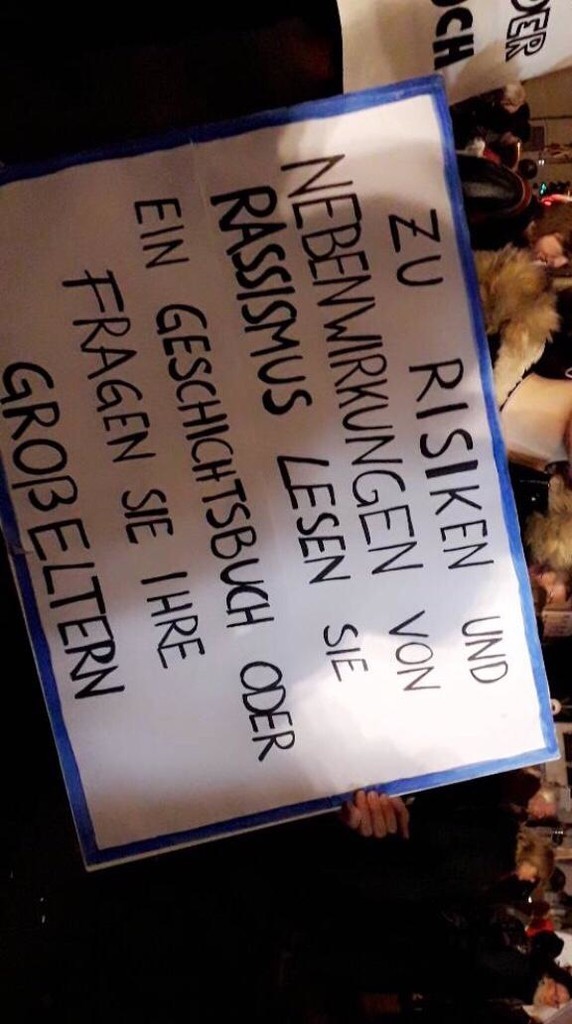 ZU RISIKEN UND
NEBENWIRKUNGEN VON
RASSISMUS LESEN SIE
EIN GESCHICHTSBUCH ODER
FRAGEN SIE IHRE
GROßELTERN
DER
OCH